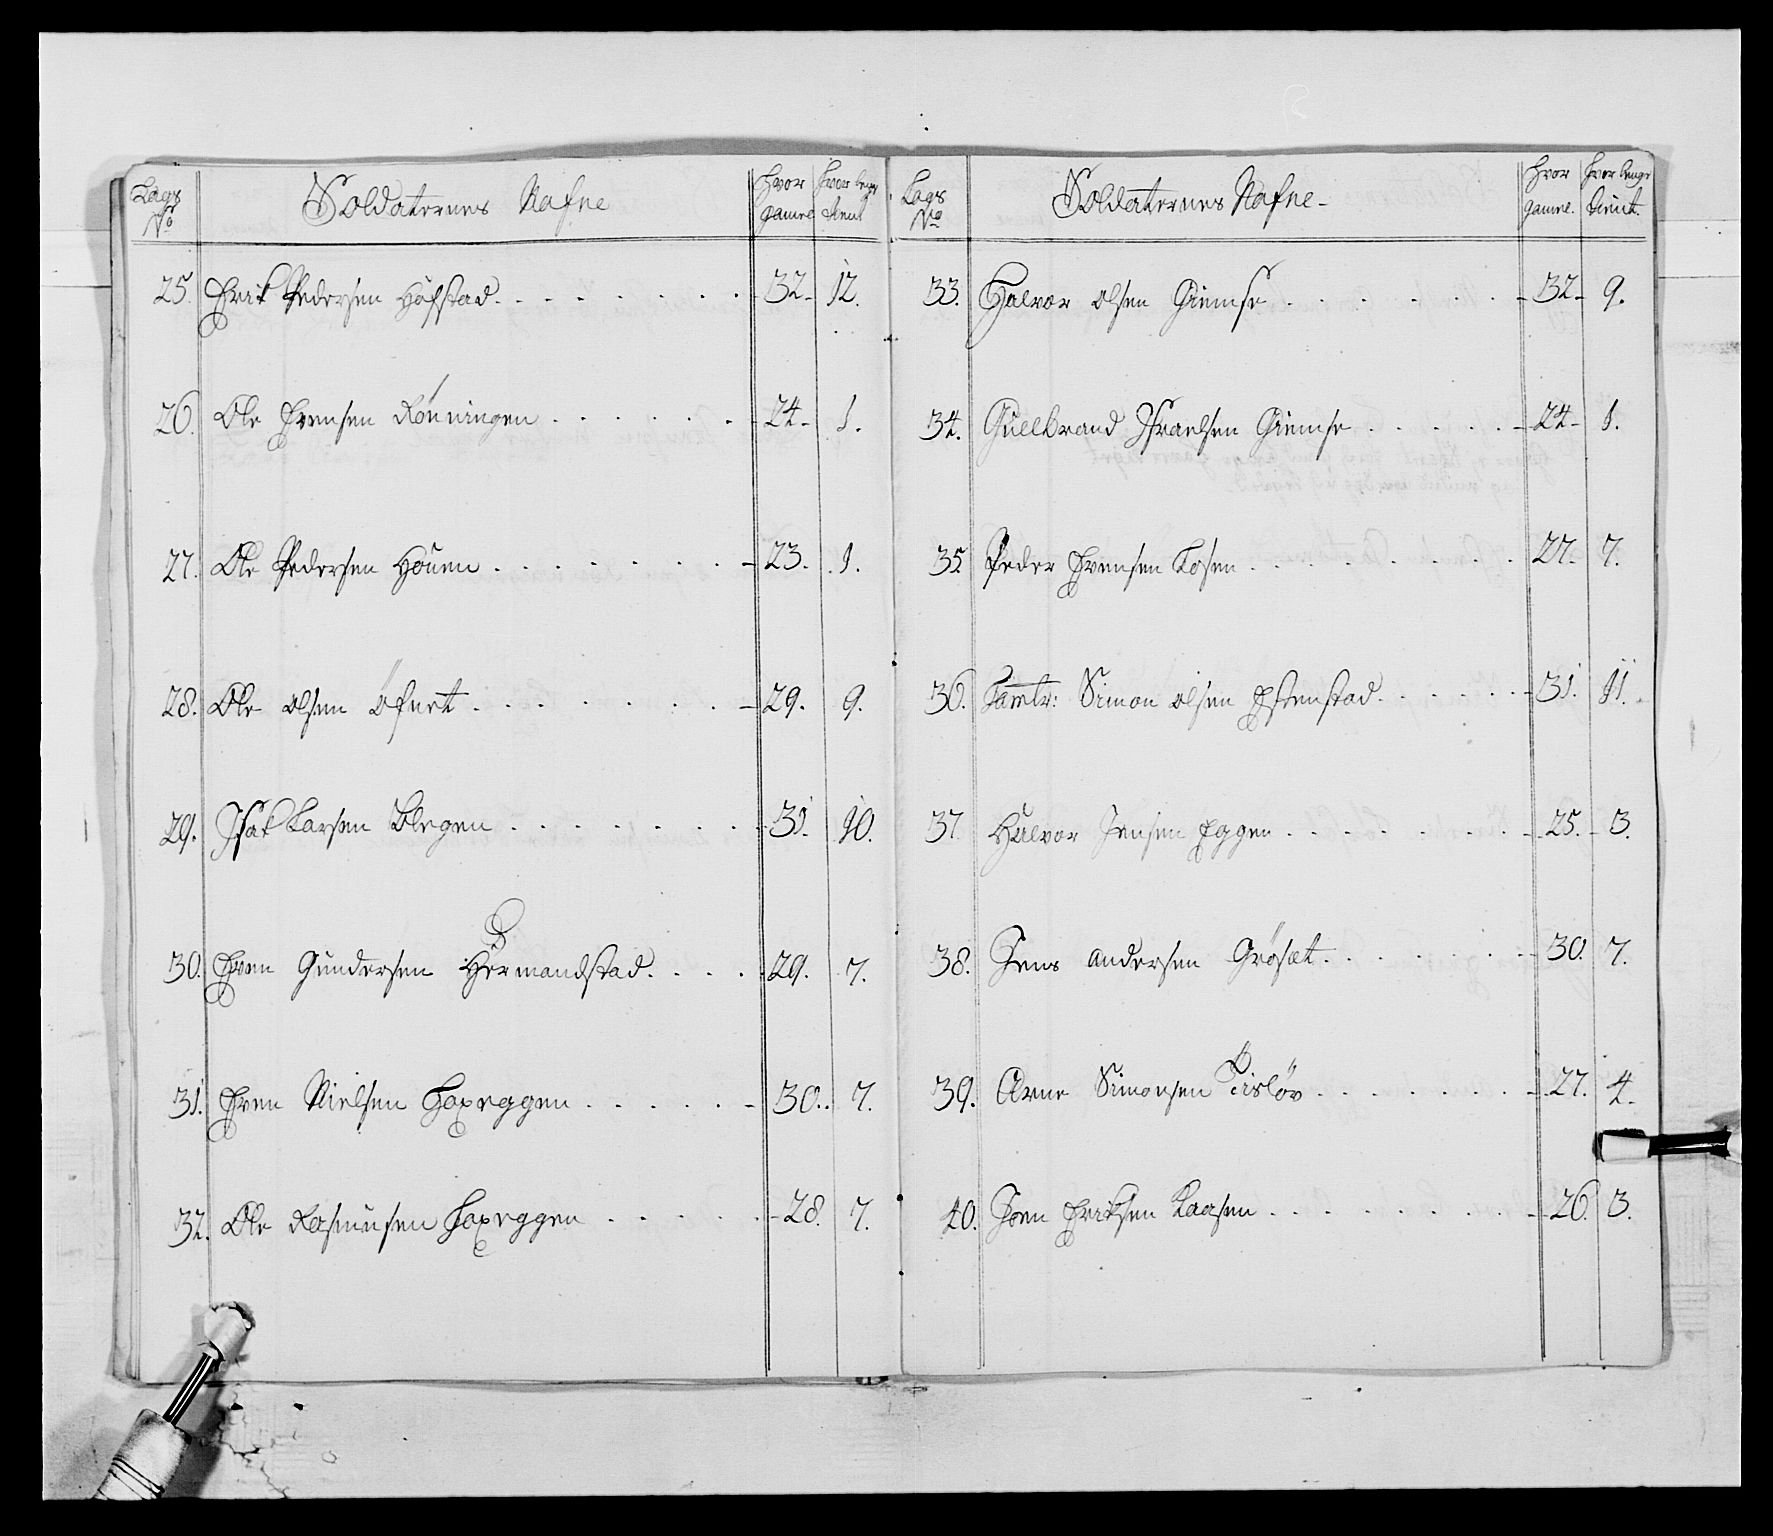 Lægs No | Soldaternes Nafne | Hvor gamel | Hvor lenge tient
25. Erik Pedersen Höfstad. 32. 12.
26. Ole Evensen Rönningen 24. 1.
27. Ole Pedersen Höuen 23. 1.
28. Ole Olsen Öfnet 29. 9.
29. Isak Larsen Blegen 31. 10.
30. Even Gundersen Hermandstad. 29. 7.
31. Even Nielsen Foxeggen 30. 7.
32. Ole Rasmusen Foxeggen 28. 7.
Lægs No | Soldaternes Nafne | Hvor gamel. | Hvor lenge tient.
33. Halvor Olsen Giemse 32. 9.
34. Guelbrand Israelsen Giemse 24. 1.
35. Peder Evensen Losen 27. 7.
36. Tamtr: Simon Olsen Estenstad. 31. 11.
37. Halvor Jensen Eggen 25. 3.
38. Jens Andersen Grösæt 30. 7.
39. Arne Simonsen Tislöv 27. 4.
40. Joen Eriksen Kaasen 26. 3.